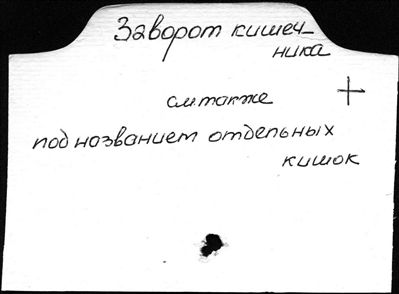 Заворот кишеч-
ника
см. также +
под названием отдельных
кишок